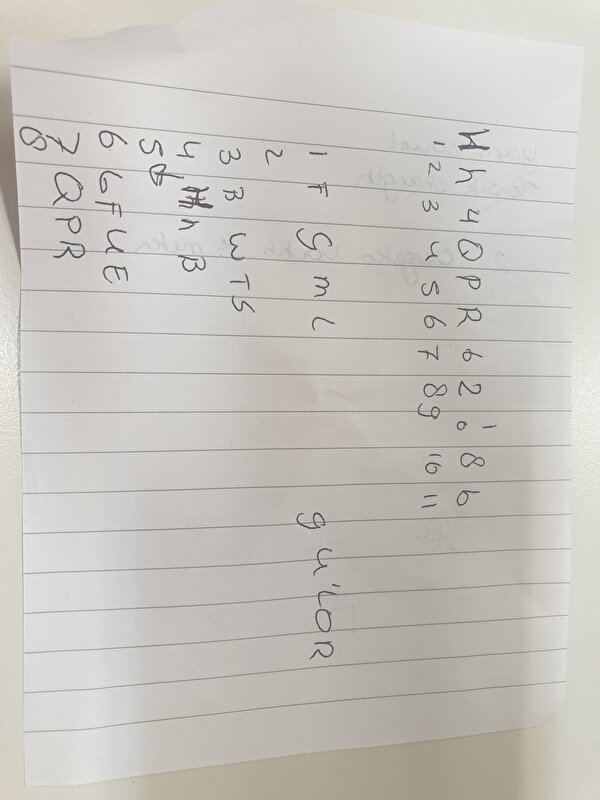 H h 4 Q P R 6 2 0 1 8 6
1 2 3 4 5 6 7 8 9 10 11
1 F g m L
2
3 B W T S
4 H h B
5 6
6 6 F U E
7 Q P R
8
9 U'LOR